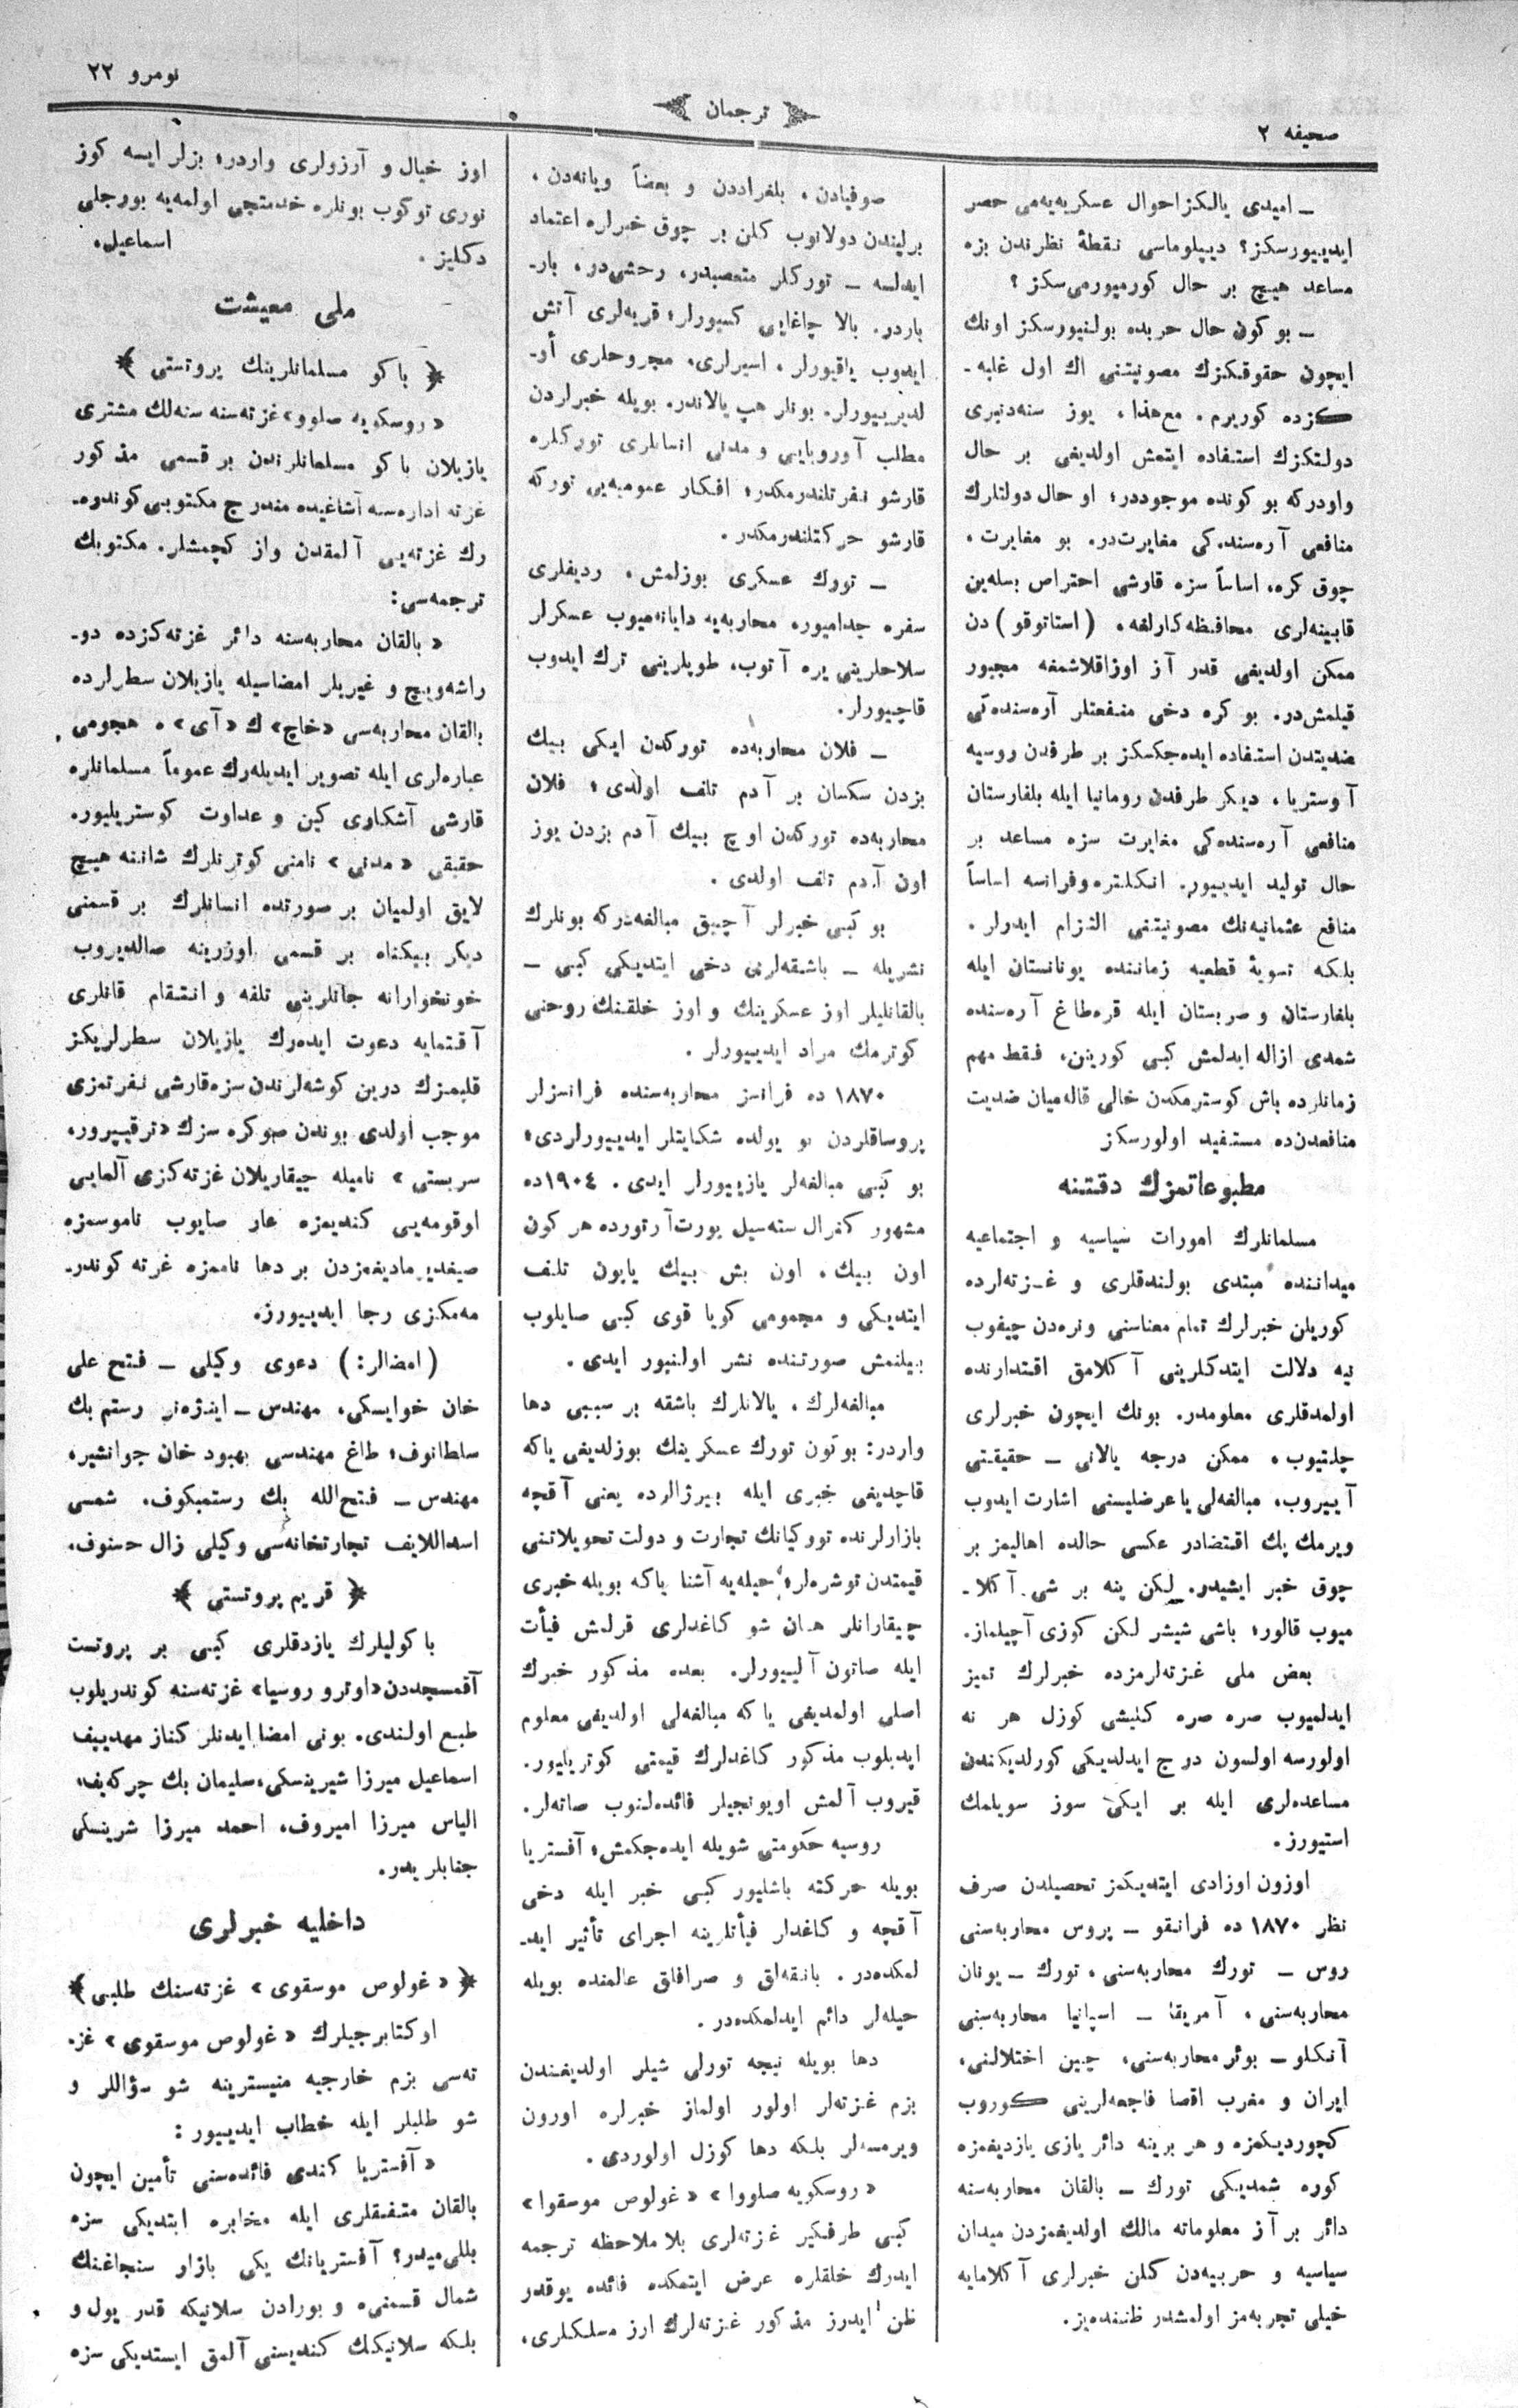 صحیفه ٢
ترجمان
نومرو ٢٢
ـ امیدی یالکز احوال عسکریه‌یه‌می حصر
ایدییورسکز؟ دیپلوماسی نقطهٔ نظرندن بزه
مساعد هیچ بر حال کورمیورمی‌سکز ؟
ـ بو کون حال حربده بولنیورسکز اونك
ایچون حقوقکزك مصونیتنی اك اول غلبه‌ـ
کزده کوریرم. مع‌هذا، یوز سنه‌دنبری
دولتکزك استفاده ایتمش اولدیغی بر حال
واودرکه بو کونده موجوددر؛ او حال دولتلرك
منافعی آره‌سنده‌کی مغایرت‌در. بو مغایرت،
چوق کره، اساساً سزه قارشی احتراص بسله‌ین
قابینه‌لری محافظه‌کارلغه، (استاتوقو) دن
ممکن اولدیغی قدر آز اوزاقلاشمغه مجبور
قیلمش‌در. بو کره دخی منفعتلر آره‌سنده‌کی
ضدیتدن استفاده ایده‌جکسکز بر طرفدن روسیه
آوستریا، دیکر طرفدن رومانیا ایله بلغارستان
منافعی آره‌سنده‌کی مغایرت سزه مساعد بر
حال تولید ایدییور. انکلتره وفرانسه اساساً
منافع عثمانیه‌نك مصونیتنی التزام ایدرلر.
بلکه تسویهٔ قطعیه زماننده یونانستان ایله
بلغارستان و صربستان ایله قره‌طاغ آره‌سنده
شمدی ازاله ایدلمش کبی کورینن، فقط مهم
زمانلرده باش کوسترمکدن خالی قاله‌میان ضدیت
منافعدن‌ده مستفید اولورسکز
مطبوعاتمزك دقتنه
مسلمانلرك امورات سیاسیه و اجتماعیه
میداننده مبتدی بولندقلری و غزته‌لرده
کوریلن خبرلرك تمام معناسنی ونره‌دن چیقوب
نیه دلالت ایتدکلرینی آکلامق اقتدارنده
اولمدقلری معلومدر. بونك ایچون خبرلری
چلتیوب، ممکن درجه یالانی ـ حقیقتی
آییروب، مبالغه‌لی یا عرضلیسنی اشارت ایدوب
ویرمك پك اقتضادر عکسی حالده اهالیمز بر
چوق خبر ایشیدر. لکن ینه بر شی آکلاـ
میوب قالور؛ باشی شیشر لکن کوزی آچیلماز.
بعض ملی غزته‌لرمزده خبرلرك تمیز
ایدلمیوب صره صره کلیشی کوزل هر نه
اولورسه اولسون درج ایدلدیکی کورلدیکندن
مساعده‌لری ایله بر ایکی سوز سویلمك
استیورز.
اوزون اوزادی ایتدیکمز تحصیلدن صرف
نظر ١٨٧٠ ده فرانقو ـ پروس محاربه‌سنی
روس ـ تورك محاربه‌سنی، تورك ـ یونان
محاربه‌سنی، آمریقا ـ اسپانیا محاربه‌سنی
آنکلو ـ بوئر محاربه‌سنی، چین اختلالنی،
ایران و مغرب اقصا فاجعه‌لرینی کوروب
کچوردیکمزه و هر برینه دائر یازی یازدیغمزه
کوره شمدیکی تورك ـ بالقان محاربه‌سنه
دائر بر آز معلوماته مالك اولدیغمزدن میدان
سیاسیه و حربیه‌دن کلن خبرلری آکلامایه
خیلی تجربه‌مز اولمشدر ظننده‌یز.
صوفیادن، بلغراددن و بعضاً ویانه‌دن،
برلیندن دولانوب کلن بر چوق خبرلره اعتماد
ایدلسه ـ تورکلر متعصبدر، وحشی‌در، بارـ
باردر. بالا چاغایی کسیورلر؛ قریه‌لری آتش
ایدوب یاقیورلر، اسیرلری، مجروحلری أوـ
لدیرییورلر. بونلر هپ یالاندر. بویله خبرلردن
مطلب آوروپایی و مدنی انسانلری تورکلره
قارشو نفرتلندرمکدر؛ افکار عمومیه‌یی تورکه
قارشو حرکتلندرمکدر.
ـ تورك عسکری بوزلمش، ردیفلری
سفره چدامیوره محاربه‌یه دایانه‌میوب عسکرلر
سلاحلرینی یره آتوب، طوپلرینی ترك ایدوب
قاچیورلر.
ـ فلان محاربه‌ده تورکدن ایکی بیك
بزدن سکسان بر آدم تلف اولدی؛ فلان
محاربه‌ده تورکدن اوچ بیك آدم بزدن یوز
اون آدم تلف اولدی.
بو کبی خبرلر آچیق مبالغه‌درکه بونلرك
نشریله ـ باشقه‌لرنی دخی ایتدیکی کبی ـ
بالقانلیلر اوز عسکرینك و اوز خلقنك روحنی
کوترمك مراد ایدییورلر.
١٨٧٠ ده فرانسز محاربه‌سنده فرانسزلر
پروساقلردن بو یولده شکایتلر ایدییورلردی؛
بو کبی مبالغه‌لر یازییورلر ایدی. ١٩٠٤ده
مشهور کنرال سته‌سیل پورت‌آرتورده هر کون
اون بیك، اون بش بیك یاپون تلف
ایتدیکی و مجمومی کویا قوی کبی صایلوب
بیلنمش صورتنده نشر اولنیور ایدی.
مبالغه‌لرك، یالانلرك باشقه بر سببی دها
واردر: بوتون تورك عسکرینك بوزلدیغی یاکه
قاچدیغی خبری ایله بیرژالرده یعنی آقچه
بازارلرنده تورکیانك تجارت و دولت تحویلاتنی
قیمتدن توشره‌لر؛ حیله‌یه آشنا یاکه بویله خبری
چیقارانلر همان شو کاغدلری قرلمش فیأت
ایله صاتون آلییورلر. بعده مذکور خبرك
اصلی اولمدیغی یاکه مبالغه‌لی اولدیغی معلوم
ایدیلوب مذکور کاغدلرك قیمتی کوتریلیور.
قیروب آلمش اویونجیلر فائده‌لنوب صاته‌لر.
روسیه حکومتی شویله ایده‌جکمش؛ آفستریا
بویله حرکته باشلیور کبی خبر ایله دخی
آقچه و کاغدلر فیأتلرینه اجرای تأثیر ایدـ
لمکده‌در. بانقه‌لق و صرافلق عالمنده بویله
حیله‌لر دائم ایدلمکده‌در.
دها بویله نیجه تورلی شیلر اولدیغندن
بزم غزته‌لر اولور اولماز خبرلره اورون
ویرمسه‌لر بلکه دها کوزل اولوردی.
«روسکویه صلووا» «غولوص موسقوا»
کبی طرفکیر غزته‌لری بلا ملاحظه ترجمه
ایدرك خلقلره عرض ایتمکده فائده یوقدر
ظن ایدرز مذکور غزته‌لرك ارز مسلکلری،
اوز خیال و آرزولری واردر؛ بزلر ایسه کوز
نوری توکوب بونلره خدمتجی اولمه‌یه بورجلی
دکلیز. اسماعیل.
ملی معیشت
باکو مسلمانلرینك پروتستی
«روسکویه صلوو» غزته‌سنه سنه‌لك مشتری
یازیلان باکو مسلمانلرندن بر قسمی مذکور
غزته اداره‌سنه آشاغیده مندرج مکتوبی کوندره‌ـ
رك غزته‌یی آلمقدن واز کچمشلر. مکتوبك
ترجمه‌سی:
«بالقان محاربه‌سنه دائر غزته‌کزده دوـ
راشه‌ویچ و غیریلر امضاسیله یازیلان سطرلرده
بالقان محاربه‌سی «خاچ» ك «آی» ه هجومی
عباره‌لری ایله تصویر ایدیله‌رك عموماً مسلمانلره
قارشی آشکاری کین و عداوت کوستریلیور.
حقیقی «مدنی» نامنی کوترنلرك شاننه هیچ
لایق اولمیان بر صورتده انسانلرك بر قسمنی
دیکر بیکناه بر قسمی اوزرینه صالدیروب
خونخوارانه جانلرینی تلفه و انتقام قانلری
آقتمایه دعوت ایده‌رك یازیلان سطرلریکز
قلبمزك درین کوشه‌لرندن سزه قارشی نفرتمزی
موجب اولدی بوندن صوکره سزك «ترقیپرور،
سربستی» نامیله چیقاریلان غزته‌کزی آلمایی
اوقومه‌یی کندیمزه عار صایوب ناموسمزه
صیغدیرمادیغمزدن بر دها ناممزه غزته کوندرـ
مه‌مکزی رجا ایدییورز.
(امضالر:) دعوی وکیلی ـ فتح علی
خان خوایسکی، مهندس ـ اینژه‌نر رستم بك
سلطانوف؛ طاغ مهندسی بهبود خان جوانشیر،
مهندس ـ فتح‌الله بك رستمبکوف، شمسی
اسداللایف تجارتخانه‌سی وکیلی زال حسنوف.
قریم پروتستی
باکولیلرك یازدقلری کبی بر پروتست
آقمسجددن «اوترو روسیا» غزته‌سنه کوندریلوب
طبع اولندی. بونی امضا ایدنلر کناز مهدییف
اسماعیل میرزا شیرینسکی، سلیمان بك چرکه‌یف،
الیاس میرزا امیروف، احمد میرزا شرینسکی
جنابلریدر.
داخلیه خبرلری
«غولوص موسقوی» غزته‌سنك طلبی
اوکتابرجیلرك «غولوص موسقوی» غزـ
ته‌سی بزم خارجیه منیسترینه شو سؤاللر و
شو طلبلر ایله خطاب ایدییور :
«آفستریا کندی فائده‌سنی تأمین ایچون
بالقان متفقلری ایله مخابره ایتدیکی سزه
بللی‌میدر؟ آفستریانك یکی بازار سنجاغنك
شمال قسمنی و بورادن سلانیکه قدر یول و
بلکه سلانیکك کندیسنی آلمق ایستدیکی سزه